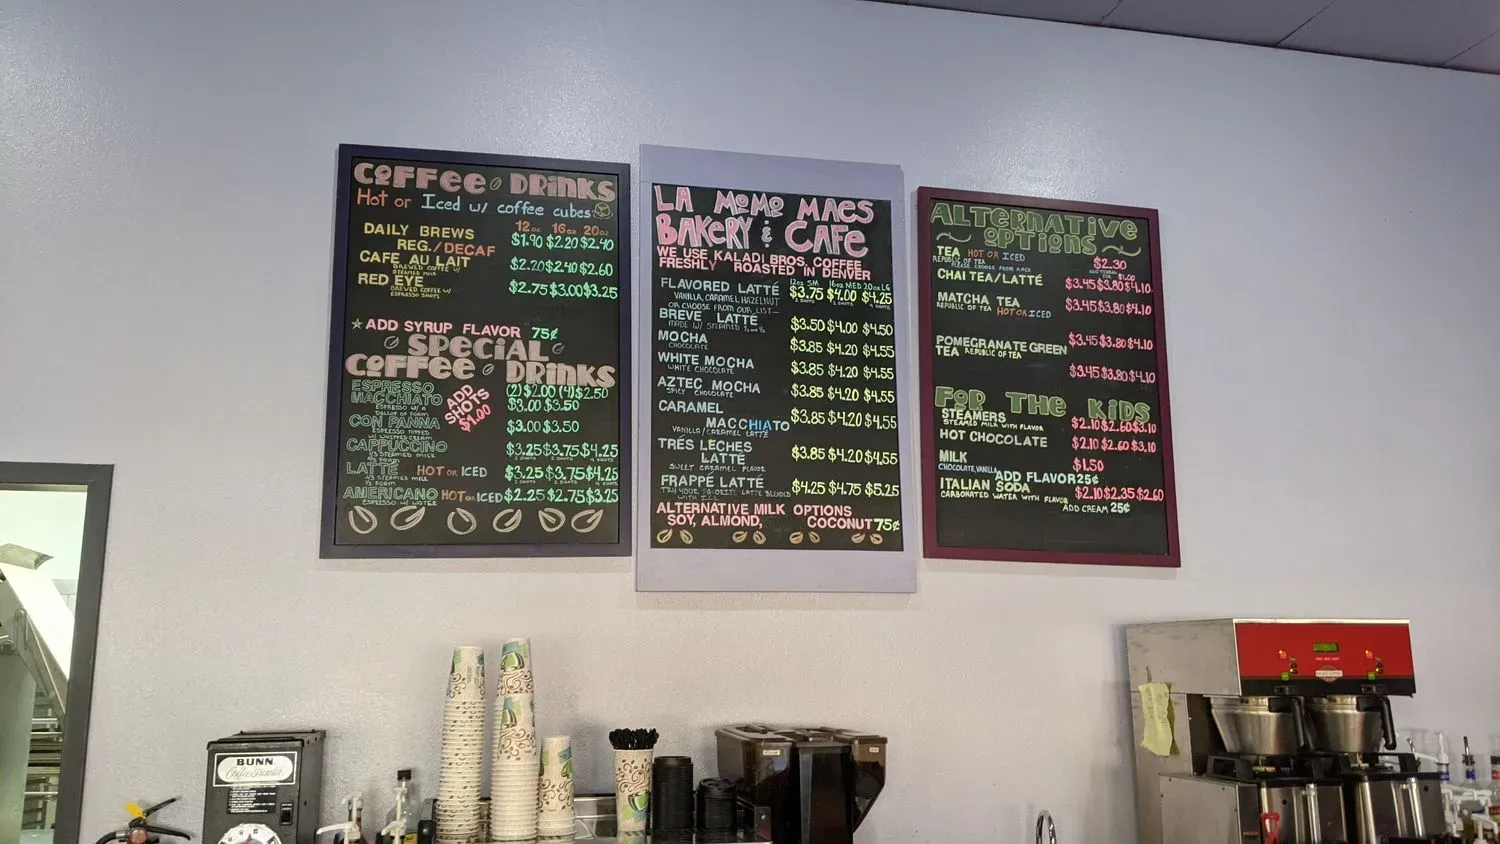 COFFEE DRINKS
Hot or Iced w/ coffee cubes
12oz 16oz 20oz
DAILY BREWS $1.90 $2.20 $2.40
REG./DECAF
CAFE AU LAIT $2.20 $2.40 $2.60
BREWED COFFEE W/
STEAMED MILK
RED EYE $2.75 $3.00 $3.25
BREWED COFFEE W/
ESPRESSO SHOTS
ADD SYRUP FLAVOR 75¢
SPECIAL
COFFEE DRINKS
ESPRESSO (2) $2.00 (4) $2.50
MACCHIATO $3.00 $3.50
ESPRESSO W/ A
DALLOP OF FOAM
ADD
SHOTS
$1.00
CON PANNA $3.00 $3.50
ESPRESSO TOPPED
W/ WHIPPED CREAM
CAPPUCCINO $3.25 $3.75 $4.25
LATTÉ HOT OR ICED $3.25 $3.75 $4.25
AMERICANO HOT OR ICED $2.25 $2.75 $3.25
ESPRESSO W/ WATER
LA MOMO MAES
BAKERY & CAFE
WE USE KALADI BROS. COFFEE
FRESHLY ROASTED IN DENVER
12oz SM 16oz MED 20oz LG
FLAVORED LATTÉ $3.75 $4.00 $4.25
VANILLA, CARAMEL, HAZELNUT
OR CHOOSE FROM OUR LIST
BREVE LATTÉ $3.50 $4.00 $4.50
MADE W/ STEAMED ½ and ½
MOCHA $3.85 $4.20 $4.55
CHOCOLATE
WHITE MOCHA $3.85 $4.20 $4.55
WHITE CHOCOLATE
AZTEC MOCHA $3.85 $4.20 $4.55
SPICY CHOCOLATE
CARAMEL
MACCHIATO $3.85 $4.20 $4.55
VANILLA/CARAMEL LATTÉ
TRÉS LECHES
LATTÉ $3.85 $4.20 $4.55
SWEET CARAMEL FLAVOR
FRAPPÉ LATTÉ $4.25 $4.75 $5.25
TRY YOUR FAVORITE LATTE BLENDED
WITH ICE
ALTERNATIVE MILK OPTIONS
SOY, ALMOND, COCONUT 75¢
ALTERNATIVE
OPTIONS
TEA HOT OR ICED $2.30
REPUBLIC OF TEA
PLEASE CHOOSE FROM RACK
CHAI TEA/LATTÉ $3.45 $3.80 $4.10
MATCHA TEA $3.45 $3.80 $4.10
REPUBLIC OF TEA HOT OR ICED
POMEGRANATE GREEN $3.45 $3.80 $4.10
TEA REPUBLIC OF TEA
$3.45 $3.80 $4.10
FOR THE KIDS
STEAMERS $2.10 $2.60 $3.10
STEAMED MILK WITH FLAVOR
HOT CHOCOLATE $2.10 $2.60 $3.10
MILK $1.50
CHOCOLATE, VANILLA, ADD FLAVOR 25¢
ITALIAN SODA $2.10 $2.35 $2.60
CARBONATED WATER WITH FLAVOR
ADD CREAM 25¢
BUNN